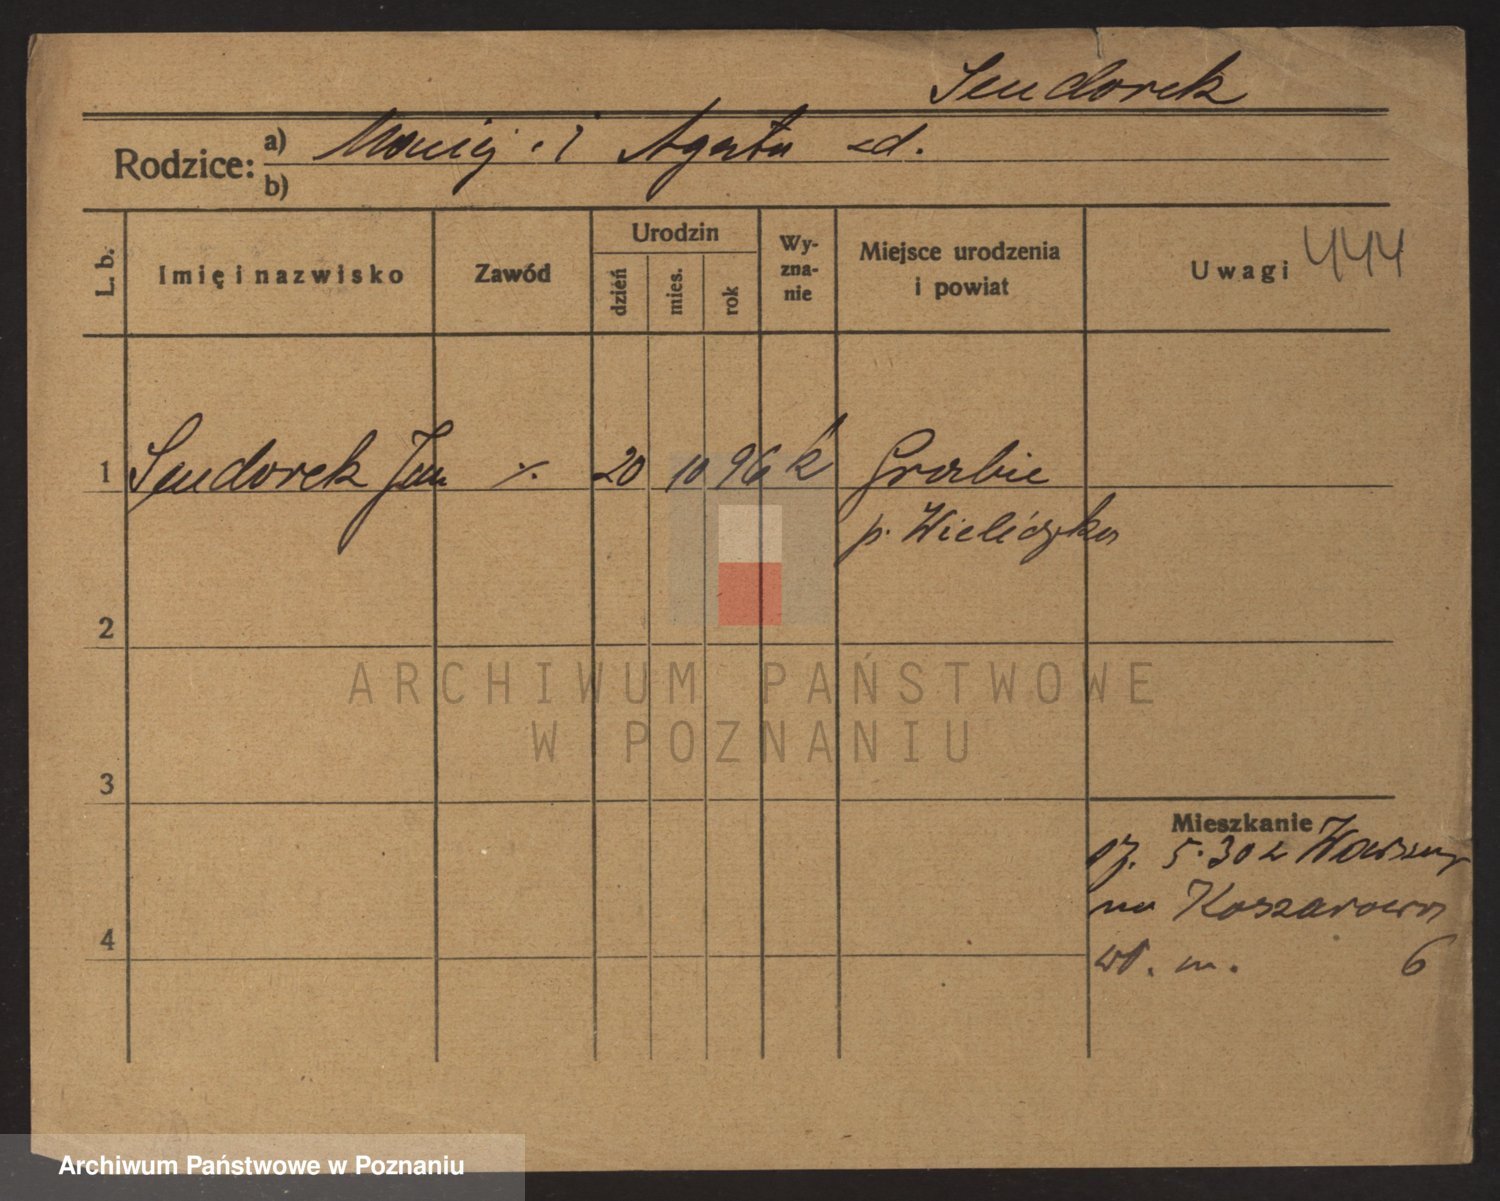 Sendorek
Rodzice: a) Maciej i Agata
b)
L. b. Imię i nazwisko Zawód Urodzin dzień mies. rok Wy-zna-nie Miejsce urodzenia i powiat Uwagi 444
1 Sendorek Jan 20 10 96 k Grabie
p. Wieliczka
2
ARCHIWUM PAŃSTWOWE
W POZNANIU
3
Mieszkanie
5.30 z Warszawy
na Koszarowa
m. 6
4
Archiwum Państwowe w Poznaniu